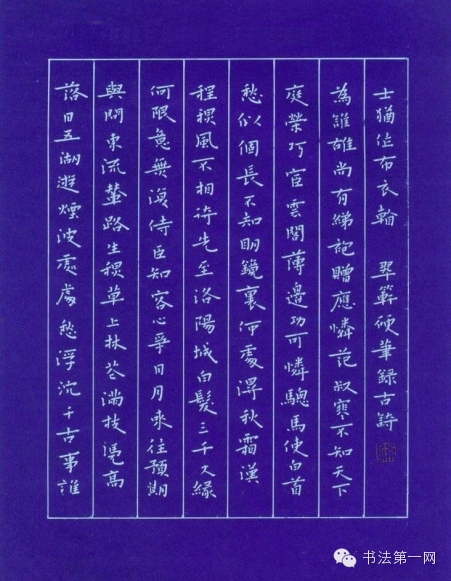 落日五湖遊煙波處處愁浮沉千古事誰
與問東流輦路生秋草上林花滿枝憑高
何限意無復侍臣知客心爭日月來往預期
程秋風不相待先至洛陽城白髮三千丈緣
愁似個長不知明鏡裏何處得秋霜漢
庭榮巧宦雲閣薄邊功可憐驄馬使白首
為誰雄尚有綈袍贈應憐范叔寒不知天下
士猶作布衣看 翠軒硬筆錄古詩
书法第一网